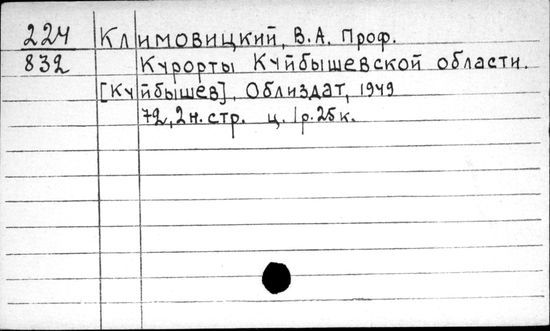 224 Климовицкий, В.А. Проф.
832 Курорты Куйбышевской области.
[Куйбышев], Облиздат, 1949
72, 2н. стр. ц. 1р. 25к.